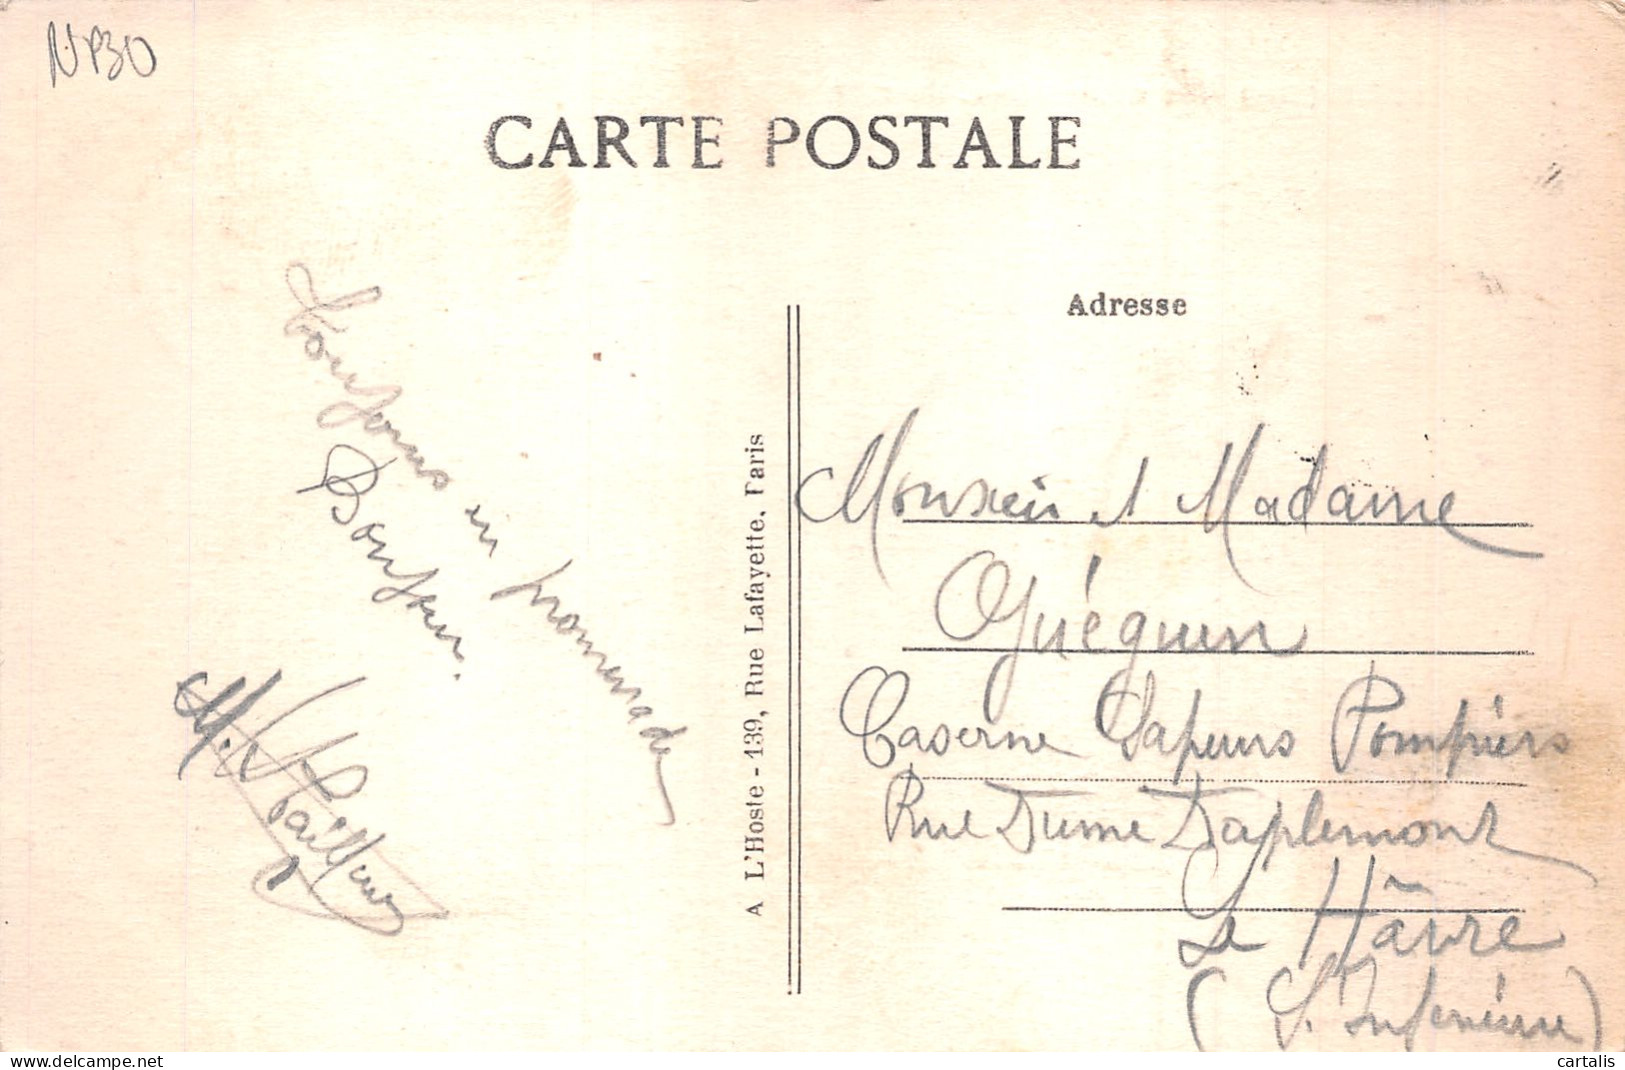 NP30
CARTE POSTALE
Toujours en promenade
Bonjour.
A L'Hoste - 139, Rue Lafayette, Paris
Adresse
Monsieur et Madame
Guéguen
Caserne Sapeurs Pompiers
Rue Dumé Daplemont
Le Hâvre
(S. Inferieure)
cartalis